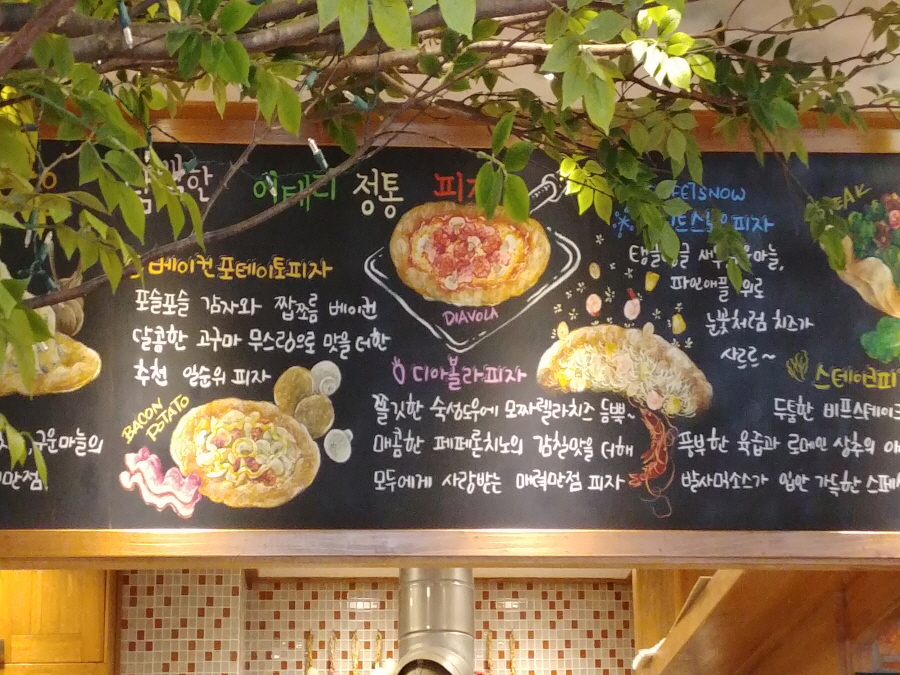 이태리 정통
베이컨포테이토피자
포슬포슬 감자와 짭쪼름 베이컨
달콤한 고구마 무스링으로 맛을 더한
추천 일순위 피자
BACON
POTATO
구운마늘의
만점
DIAVOLA
디아볼라피자
쫄깃한 숙성도우에 모짜렐라치즈 듬뿍~
매콤한 페페론치노의 감칠맛을 더해
모두에게 사랑받는 매력만점 피자
파인애플 위로
눈꽃처럼 치즈가
사르르~
두툼한
풍부한 육즙과 로메인 상추의
발사믹소스가 입안 가득한